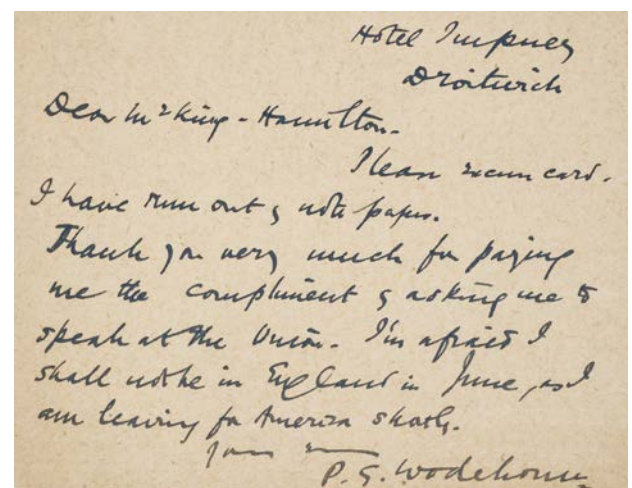 Hotel Impney
Droitwich
Dear Mr King-Hamilton.
Please excuse card.
I have run out of note paper.
Thank you very much for paying
me the compliment of asking me to
speak at the Union. I'm afraid I
shall not be in England in June, as I
am leaving for America shortly.
Yours
P. G. Wodehouse